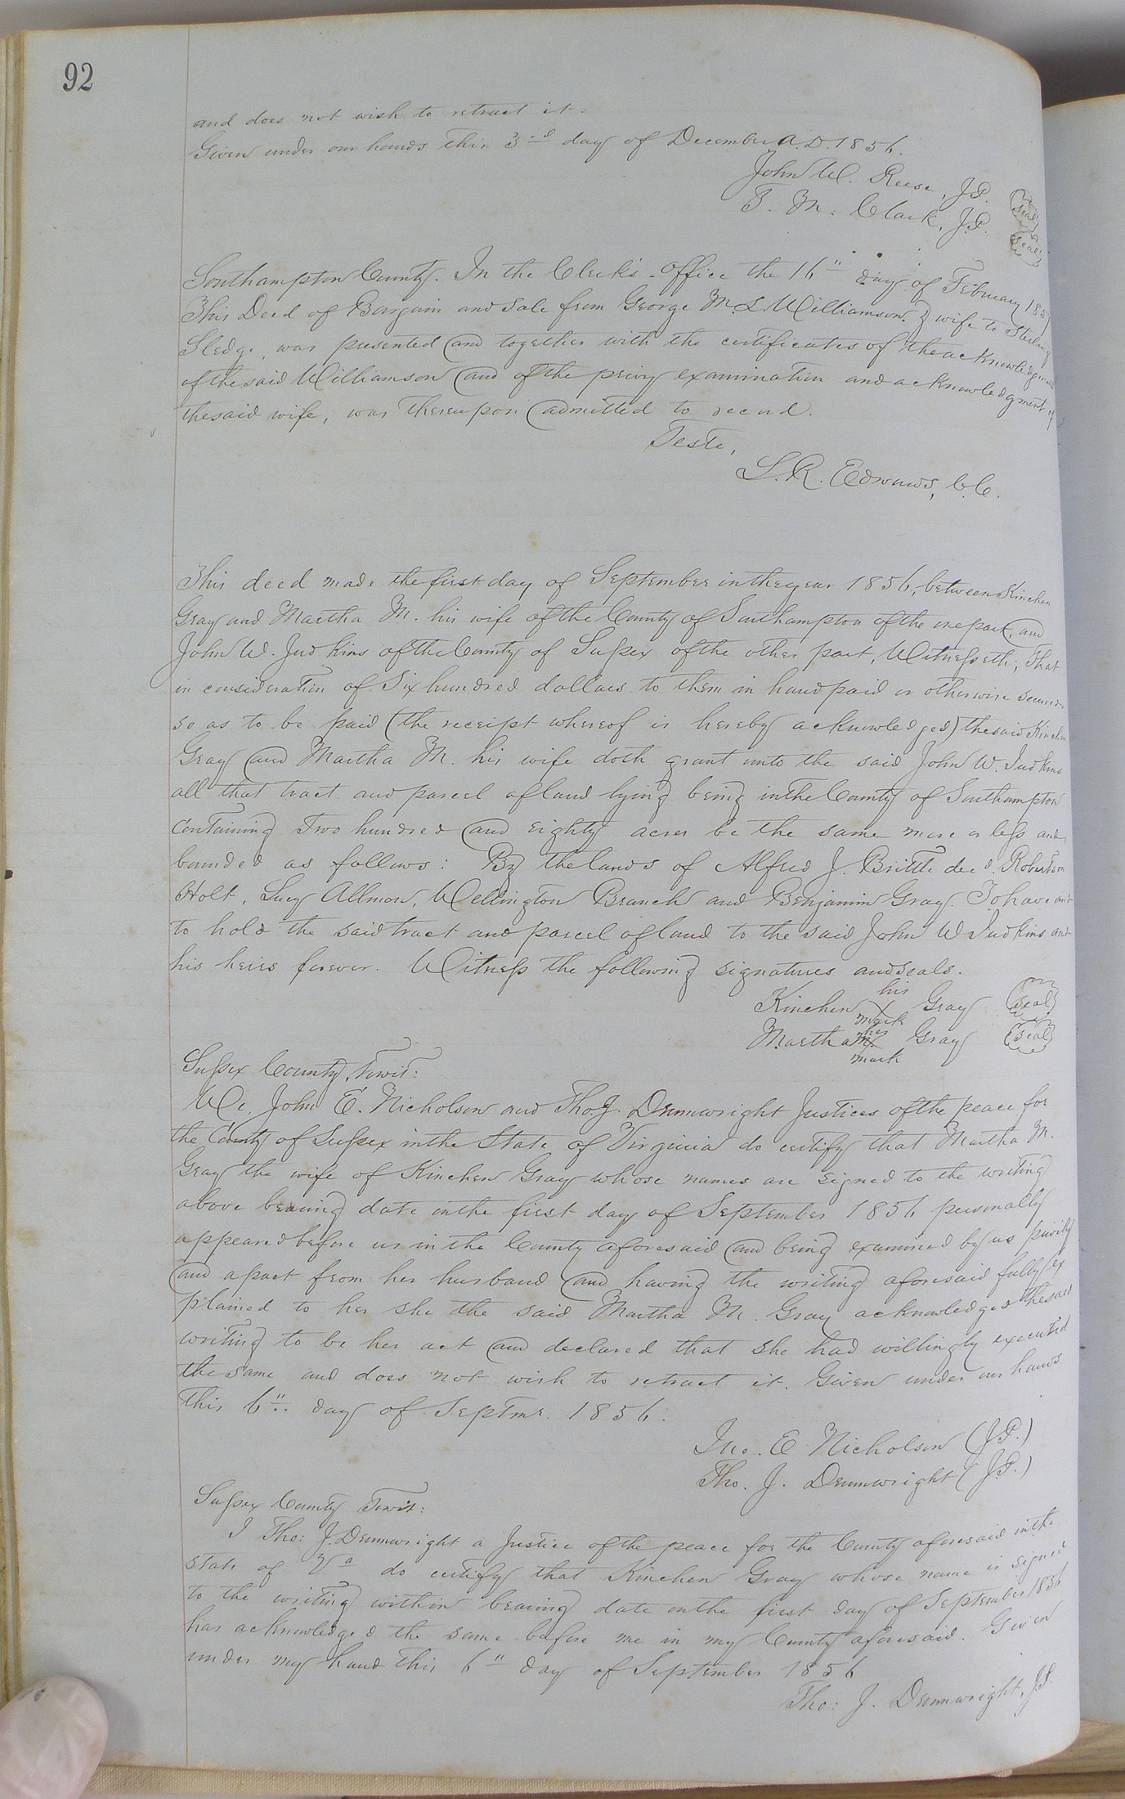 92
and does not wish to retract it.
Given under our hands this 3rd day of December A.D. 1856.
John W. Reese, J.P. (seal)
T. M. Clark, J.P. (seal)
Southampton County. In the Clerk's Office the 16" day of February 1857
This Deed of Bargain and Sale from George M. L. Williamson & wife to Sterling
Sledge, was presented and together with the certificates of the acknowledgment
of the said Williamson and of the privy examination and acknowledgment of
the said wife, was thereupon admitted to record.
Teste,
L. R. Edwards, C.C.
This deed made the first day of September in the year 1856, between Kinchen
Gray and Martha M. his wife of the County of Southampton of the one part, and
John W. Judkins of the County of Sussex of the other part, Witnesseth, That
in consideration of Six hundred dollars to them in hand paid or otherwise secured
so as to be paid (the receipt whereof is hereby acknowledged) the said Kinchen
Gray and Martha M. his wife doth grant unto the said John W. Judkins
all that tract and parcel of land lying being in the County of Southampton
Containing Two hundred and eighty acres be the same more or less and
bounded as follows: By the lands of Alfred J. Brittle decd. Robertson
Holt, Lucy Allmon, Wellington Branch and Benjamin Gray. To have and
to hold the said tract and parcel of land to the said John W Judkins and
his heirs forever. Witness the following signatures and seals.
his
Kinchen X Gray (seal)
mark
her
Martha M X Gray (seal)
mark
Sussex County, Towit:
We, John E. Nicholson and Tho. J. Drumwright Justices of the peace for
the County of Sussex in the State of Virginia do certify that Martha M.
Gray the wife of Kinchen Gray whose names are signed to the writing
above bearing date on the first day of September 1856 personally
appeared before us in the County aforesaid and being examined by us privily
and apart from her husband and having the writing aforesaid fully ex
plained to her she the said Martha M. Gray acknowledged the said
writing to be her act and declared that she had willingly executed
the same and does not wish to retract it. Given under our hands
this 6" day of Septmr. 1856.
Jno. E Nicholson (J.P.)
Tho. J. Drumwright (J.P.)
Sussex County Towit:
I Tho: J. Drumwright a Justice of the peace for the County aforesaid in the
state of Va do certify that Kinchen Gray whose name is signed
to the writing within bearing date on the first day of September 1856
has acknowledged the same before me in my County aforesaid. Given
under my hand this 6" day of September 1856
Tho: J. Drumwright, J.P.